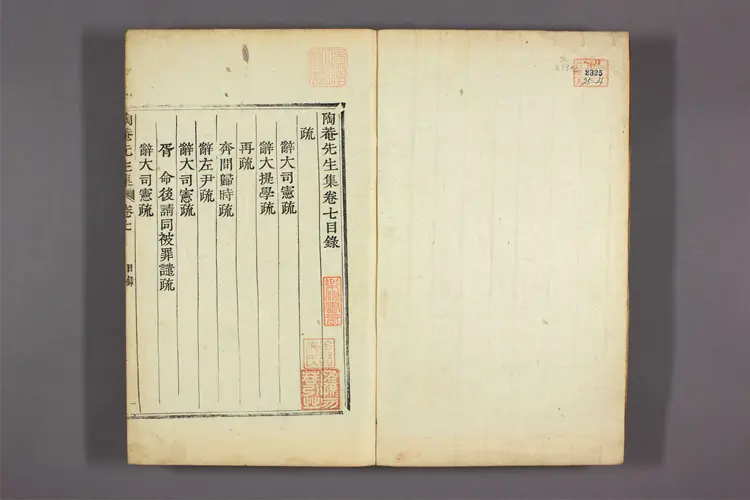 陶菴先生集卷七目錄
疏
辭大司憲疏
辭大提學疏
再疏
奔問歸時疏
辭左尹疏
辭大司憲疏
胥命後請同被罪譴疏
辭大司憲疏
陶菴先生集
卷七
目錄
一
2325